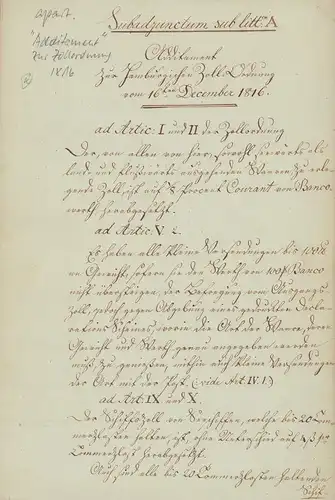 apart.
"Additament"
zur Zollordnung
1816
Subadjunctum sub litt. A
Additament
Zur Hamburgischen Zoll-Ordnung
vom 16ten December 1816.
ad Artic: I und II der Zollordnung
Der, von allen von hier, sowohl seewärts als
land und flußwärts ausgehenden Waren, zu erle-
gende Zoll, ist auf ½ Procent Courant von Banco-
werth herabgesetzt.
ad Artic. V
Es haben alle kleine Versendungen bis 100 ℔
an Gewicht, sofern sie den Werth von 100 Banco
nicht übersteigen, der Befreyung vom Ausgangs
Zoll, jedoch gegen Abgebung eines gedruckten Decla-
rations Scheines, worin die Art der Waare, deren
Gewicht und Werth genau angegeben werden
muß zu genießen, mithin auch kleine Versendungen
der Art mit der Post. (vide Art. IV. 1.)
ad Art. IX und X.
Der Schiffszoll von Seeschiffen, welche bis 20 Com-
merzlasten halten, ist, ohne Unterschied auf 4
Commerzlast herabgesetzt.
Auch sind alle bis 20 Commerzlasten haltenden
Schif-